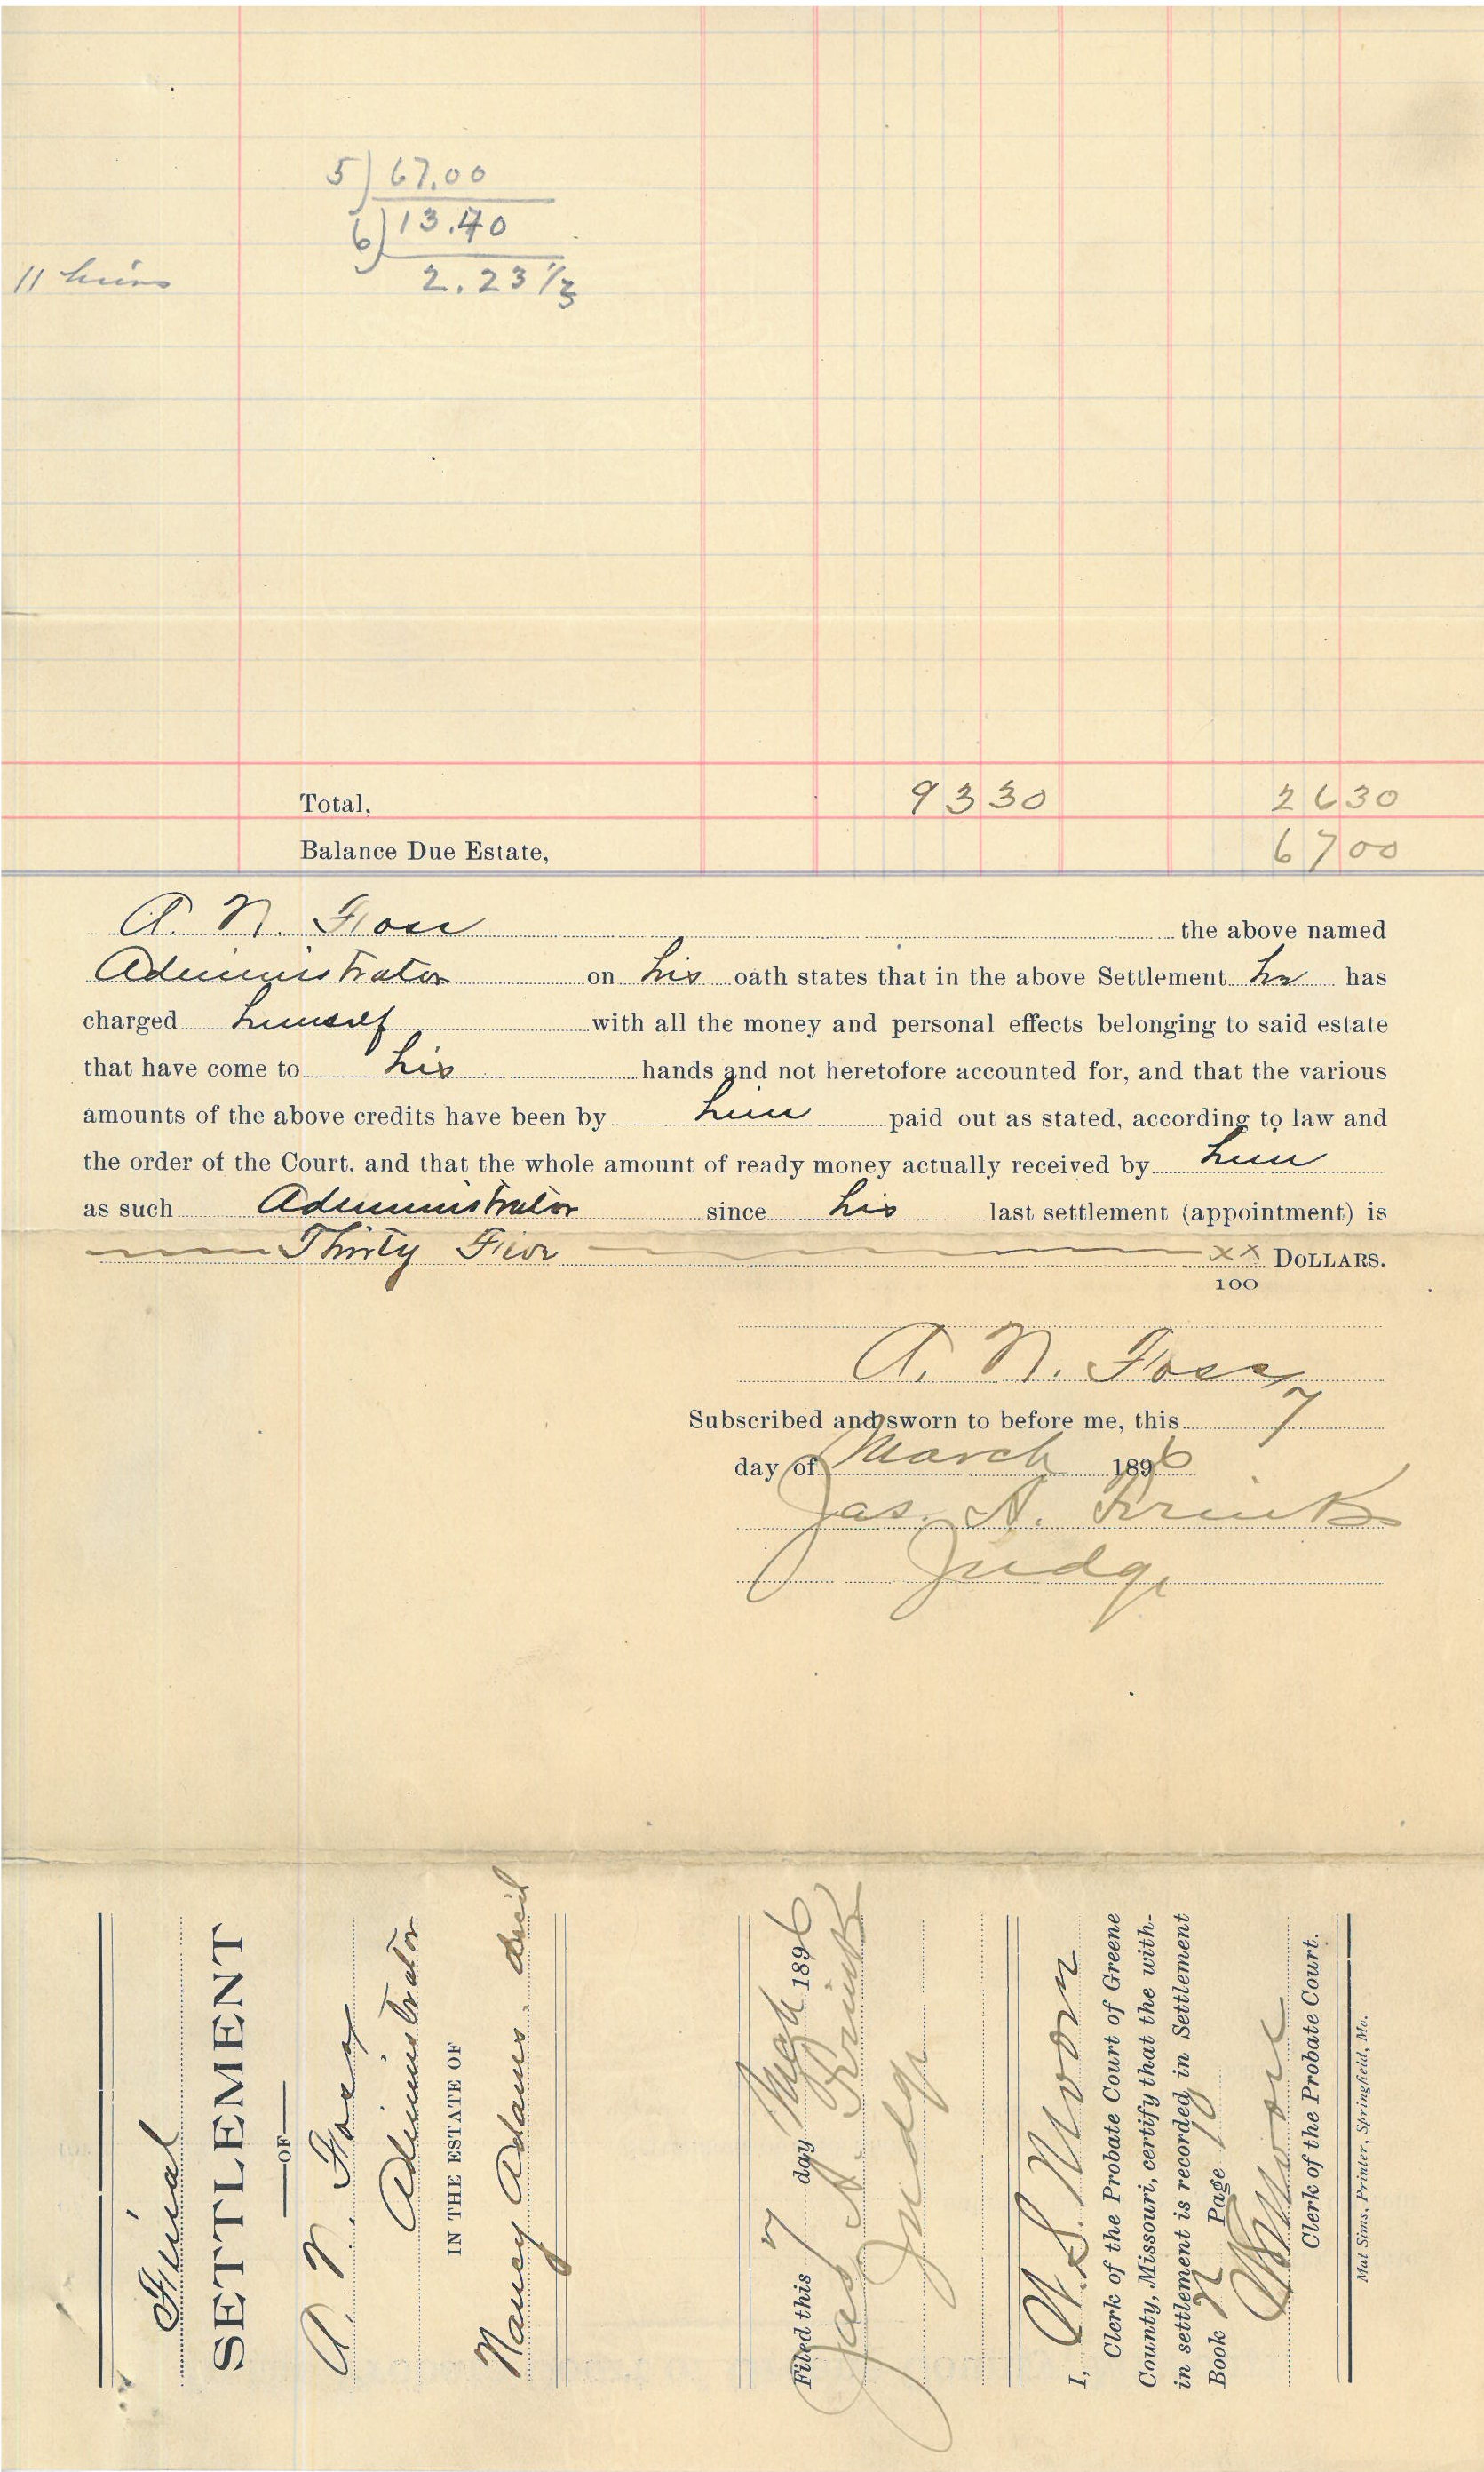 5) 67.00
6) 13.40
11 heirs 2.23 1/3
Total, 93 30 26 30
Balance Due Estate, 67 00
A. N. the above named
Administrator on his oath states that in the above Settlement he has
charged himself with all the money and personal effects belonging to said estate
that have come to his hands and not heretofore accounted for, and that the various
amounts of the above credits have been by him paid out as stated, according to law and
the order of the Court, and that the whole amount of ready money actually received by him
as such Administrator since his last settlement (appointment) is
Thirty Five xx/100 DOLLARS.
A. N.
Subscribed and sworn to before me, this 7
day of March 1896
Jas. A.
Judge
Final
SETTLEMENT
OF
A. N.
Administrator
IN THE ESTATE OF
Nancy Adams decd
Filed this 7 day Mch 1896
Jas. A.
Judge
I, W. S. Moore
Clerk of the Probate Court of Greene
County, Missouri, certify that the with-
in settlement is recorded in Settlement
Book N Page
WS Moore
Clerk of the Probate Court.
Mat Sims, Printer, Springfield, Mo.